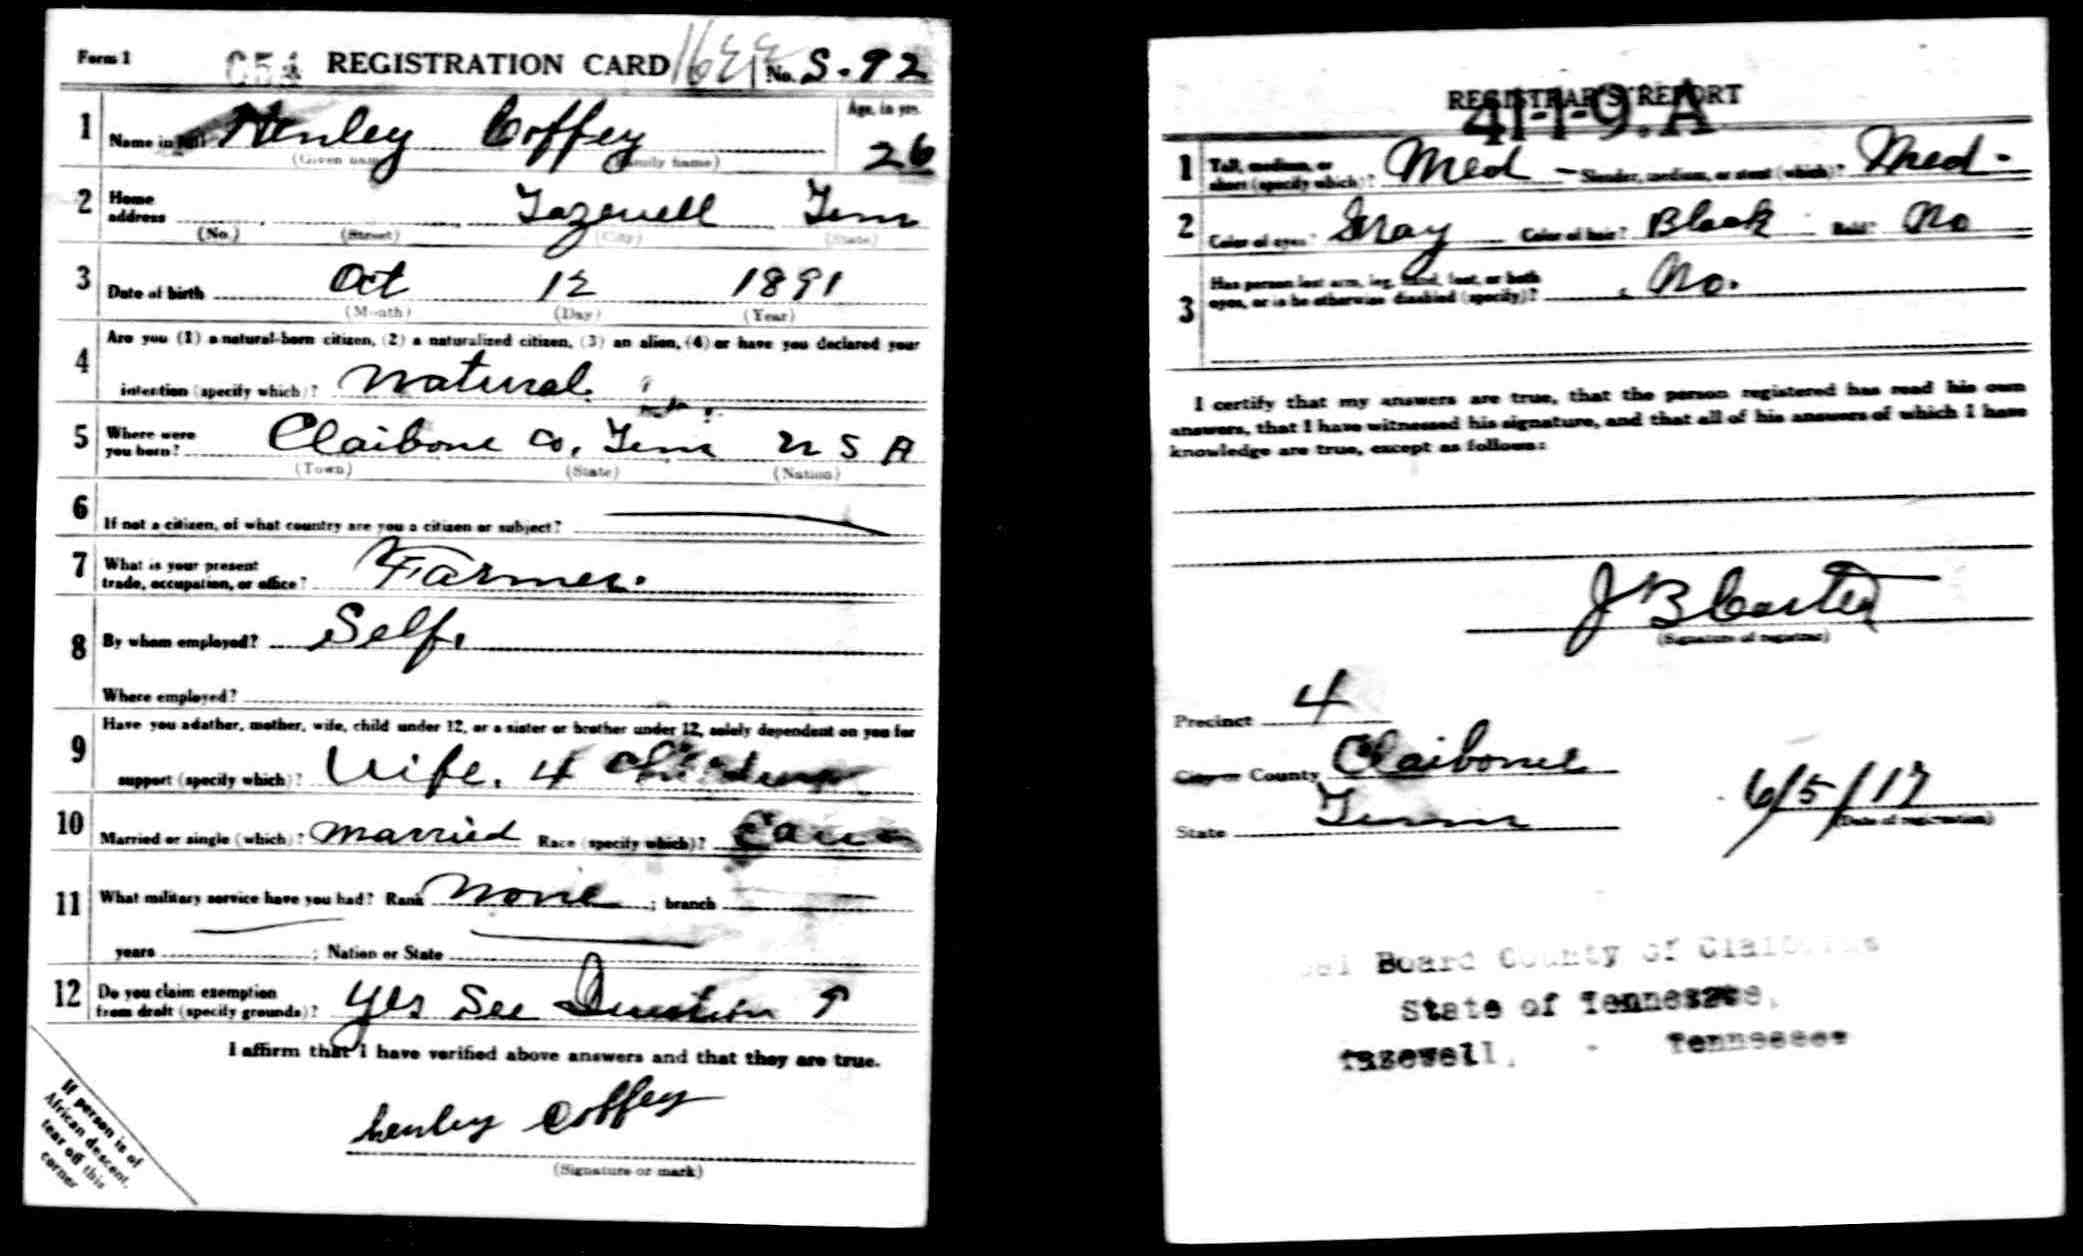 Form 1 C54 REGISTRATION CARD No. S-92
1 Name in full Henley Coffey Age, in yrs. 26
(Given name) (Family name)
2 Home address Tazewell Tenn
(No.) (Street) (City) (State)
3 Date of birth Oct 12 1891
(Month) (Day) (Year)
4 Are you (1) a natural-born citizen, (2) a naturalized citizen, (3) an alien, (4) or have you declared your
intention (specify which)? Natural
5 Where were you born? Claibone Co, Tenn U S A
(Town) (State) (Nation)
6 If not a citizen, of what country are you a citizen or subject?
7 What is your present trade, occupation, or office? Farmer.
8 By whom employed? Self.
Where employed?
9 Have you a father, mother, wife, child under 12, or a sister or brother under 12, solely dependent on you for
support (specify which)? Wife, 4 children
10 Married or single (which)? Married Race (specify which)? Cau
11 What military service have you had? Rank None ; branch
years ; Nation or State
12 Do you claim exemption from draft (specify grounds)? Yes See Question 9
I affirm that I have verified above answers and that they are true.
Henley Coffey
(Signature or mark)
If person is of
African descent,
tear off this
corner
REGISTRAR'S REPORT
41-1-9. A
1 Tall, medium, or short (specify which)? Med - Slender, medium, or stout (which)? Med.
2 Color of eyes? Gray Color of hair? Black Bald? No
3 Has person lost arm, leg, hand, foot, or both
eyes, or is he otherwise disabled (specify)? No.
I certify that my answers are true, that the person registered has read his own
answers, that I have witnessed his signature, and that all of his answers of which I have
knowledge are true, except as follows:
J B Carter
(Signature of registrar)
Precinct 4
City or County Claiborne
State Tenn
6/5/17
(Date of registration)
Board County of Claiborne
State of Tennessee,
Tazewell, - Tennessee